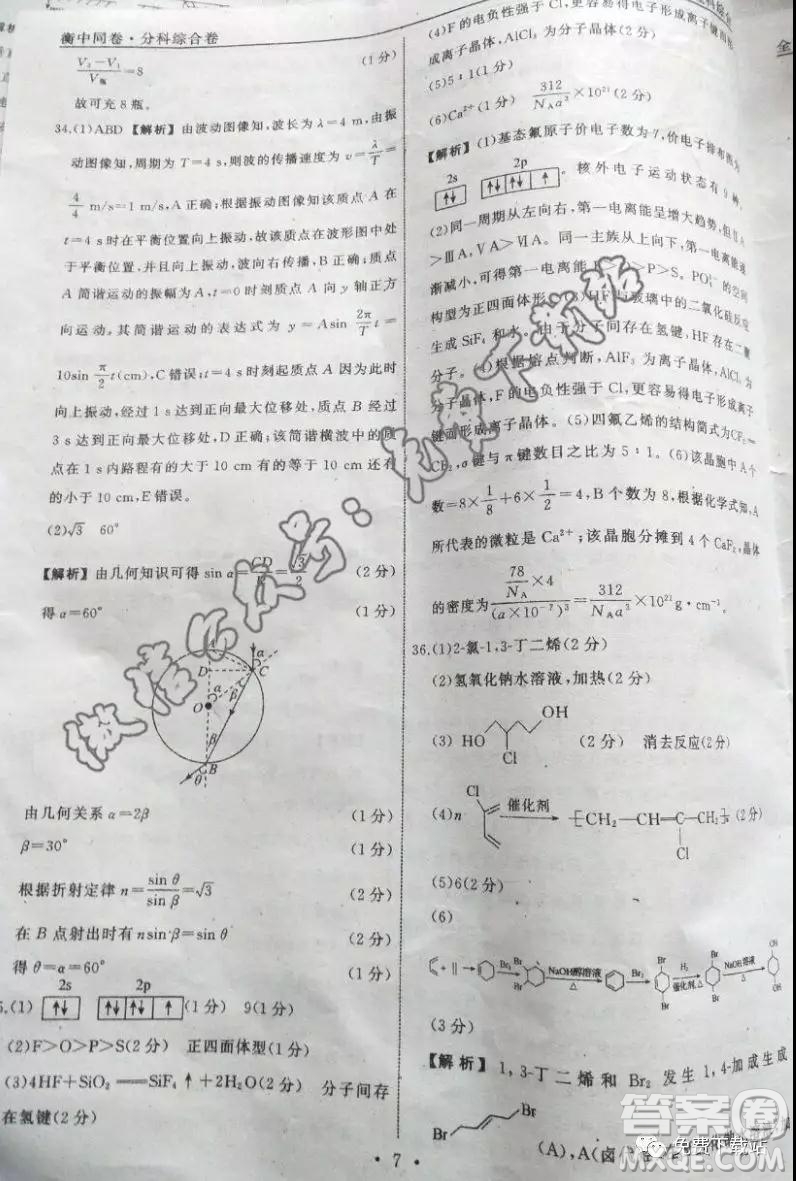 衡中同卷·分科综合卷
V₂－V₁/V瓶＝8 (1分)
故可充8瓶。
34.(1)ABD 【解析】由波动图像知,波长为λ＝4 m,由振
动图像知,周期为T＝4 s,则波的传播速度为v＝λ/T＝
4/4 m/s＝1 m/s,A正确;根据振动图像知该质点A在
t＝4 s时在平衡位置向上振动,故该质点在波形图中处
于平衡位置,并且向上振动,波向右传播,B正确;质点
A简谐运动的振幅为A,t＝0时刻质点A向y轴正方
向运动。其简谐运动的表达式为y＝Asin 2π/T t＝
10sin π/2 t(cm),C错误;t＝4 s时刻起质点A因此时
向上振动,经过1 s达到正向最大位移处,质点B经过
3 s达到正向最大位移处,D正确;该简谐横波中的质
点在1 s内路程有的大于10 cm有的等于10 cm还有
的小于10 cm,E错误。
(2)√3 60°
【解析】由几何知识可得sin α＝CD/R＝√3/2 (2分)
得α＝60° (1分)
A
D
α
C
α
β
O
B
β
θ
由几何关系α＝2β (1分)
β＝30° (1分)
根据折射定律n＝sin θ/sin β＝√3 (2分)
在B点射出时有nsin β＝sin θ (2分)
得θ＝α＝60° (1分)
2s 2p
5.(1) ↑↓ ↑↓ ↑↓ ↑ (1分) 9(1分)
(2)F>O>P>S(2分) 正四面体型(1分)
(3)4HF＋SiO₂══SiF₄↑＋2H₂O(2分) 分子间存
在氢键(2分)
(4)F的电负性强于Cl,更容易得电子形成离子键而形
成离子晶体,AlCl₃为分子晶体(2分)
(5)5∶1(1分)
(6)Ca²⁺(1分) 312/(N_A a³)×10²¹(2分)
【解析】(1)基态氟原子价电子数为7,价电子排布图为
2s 2p
↑↓ ↑↓ ↑↓ ↑ 。核外电子运动状态有9种。
(2)同一周期从左向右,第一电离能呈增大趋势,但ⅡA
>ⅢA,ⅤA>ⅥA。同一主族从上向下,第一电离能逐
渐减小,可得第一电离能 >P>S。PO₄³⁻的空间
构型为正四面体形。(3)HF与玻璃中的二氧化硅反应
生成SiF₄和水。由于分子间存在氢键,HF存在二聚
分子。(4)根据熔点判断,AlF₃为离子晶体,AlCl₃为
分子晶体,F的电负性强于Cl,更容易得电子形成离子
键而形成离子晶体。(5)四氟乙烯的结构简式为CF₂＝
CF₂,σ键与π键数目之比为5∶1。(6)该晶胞中A个
数＝8×1/8＋6×1/2＝4,B个数为8,根据化学式知,A
所代表的微粒是Ca²⁺;该晶胞分摊到4个CaF₂,晶体
的密度为(78/N_A×4)/(a×10⁻⁷)³＝312/(N_A a³)×10²¹g·cm⁻³。
36.(1)2-氯-1,3-丁二烯(2分)
(2)氢氧化钠水溶液,加热(2分)
(3) HO Cl OH (2分) 消去反应(2分)
(4)n Cl 催化剂→ ⁅CH₂—CH＝C—CH₂⁆ₙ (2分)
Cl
(5)6(2分)
(6)
＋ ‖ → Br₂ → Br Br NaOH醇溶液 △ → Br₂ → Br Br H₂ 催化剂,△ → Br Br NaOH溶液 △ → OH OH
(3分)
【解析】1,3-丁二烯和Br₂发生1,4-加成生成
Br Br
(A),A(卤
·7·
答案圈
免费下载站
MXQE.COM